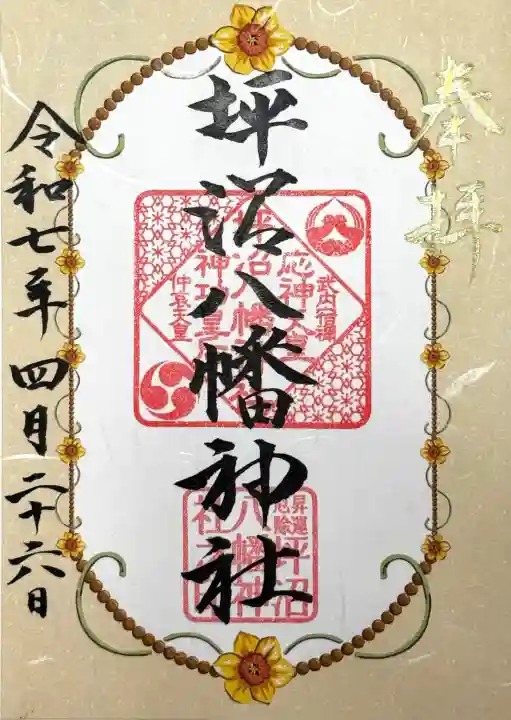 奉拝
坪沼八幡神社
武内宿禰
応神天皇
坪沼八幡
神功皇
仲哀天皇
昇運
厄除
坪沼
八幡神
社
令和七年四月二十六日